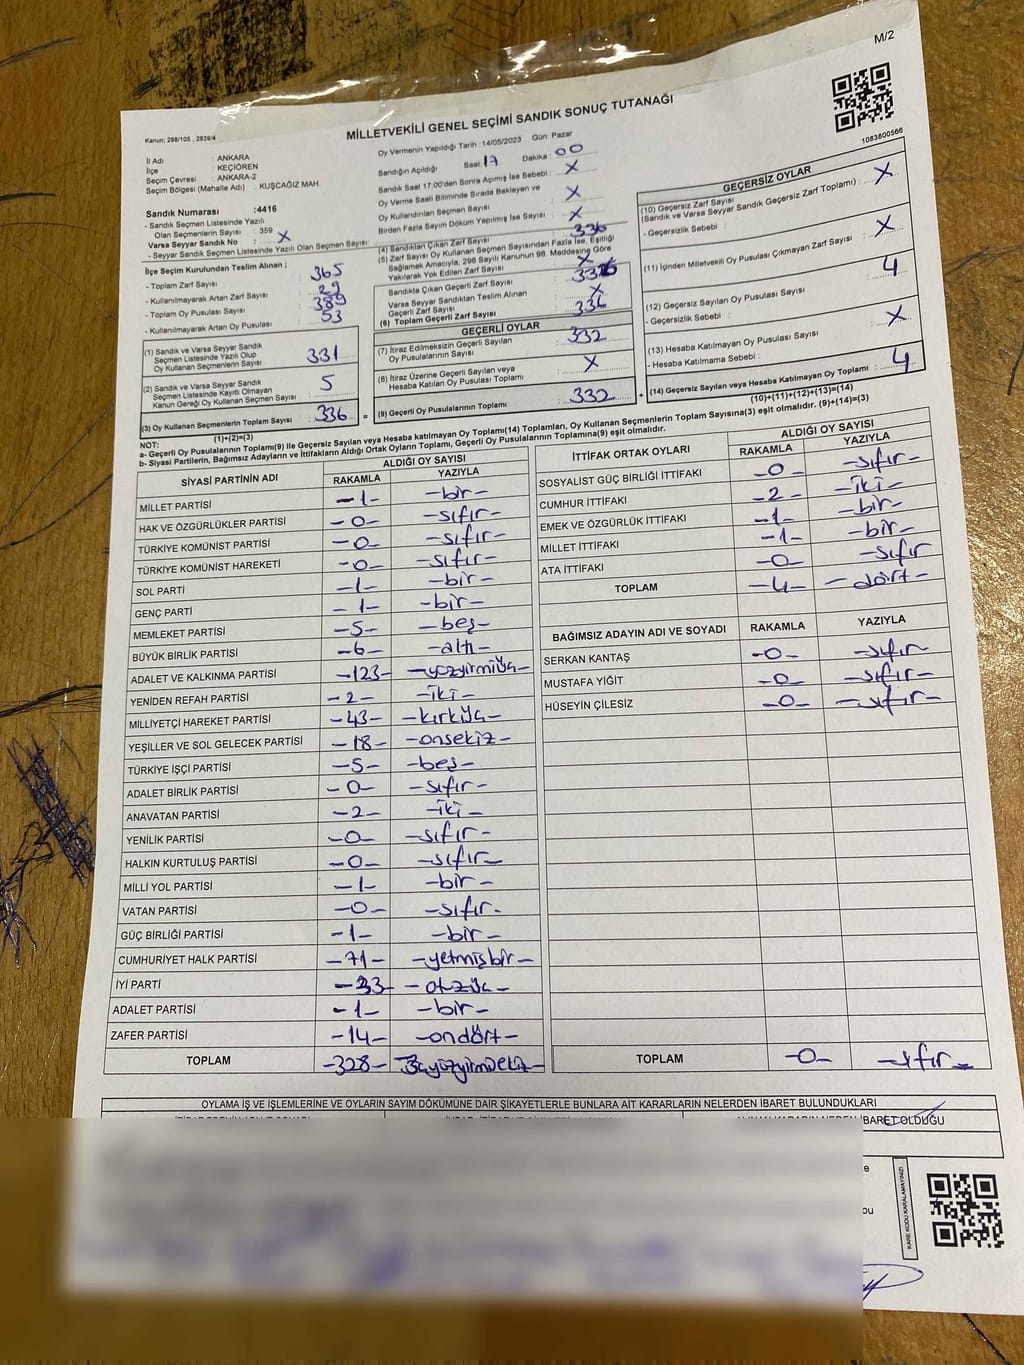 M/2
Kanun; 298/105 , 2839/4
MİLLETVEKİLİ GENEL SEÇİMİ SANDIK SONUÇ TUTANAĞI
1083800566
İl Adı : ANKARA
İlçe : KEÇİÖREN
Seçim Çevresi : ANKARA-2
Seçim Bölgesi (Mahalle Adı) : KUŞCAĞIZ MAH.
Sandık Numarası :4416
- Sandık Seçmen Listesinde Yazılı
Olan Seçmenlerin Sayısı : 359
Varsa Seyyar Sandık No : X
- Seyyar Sandık Seçmen Listesinde Yazılı Olan Seçmen Sayısı:
İlçe Seçim Kurulundan Teslim Alınan ;
- Toplam Zarf Sayısı 365
- Kullanılmayarak Artan Zarf Sayısı 29
- Toplam Oy Pusulası Sayısı 389
- Kullanılmayarak Artan Oy Pusulası 53
(1) Sandık ve Varsa Seyyar Sandık
Seçmen Listesinde Yazılı Olup
Oy Kullanan Seçmenlerin Sayısı 331
(2) Sandık ve Varsa Seyyar Sandık
Seçmen Listesinde Kayıtlı Olmayan
Kanun Gereği Oy Kullanan Seçmen Sayısı 5
(3) Oy Kullanan Seçmenlerin Toplam Sayısı : 336
(1)+(2)=(3)
Oy Vermenin Yapıldığı Tarih :14/05/2023 Gün: Pazar
Sandığın Açıldığı Saat: 17 Dakika : 00
Sandık Saat 17:00'den Sonra Açılmış İse Sebebi : X
Oy Verme Saati Bitiminde Sırada Bekleyen ve
Oy Kullandırılan Seçmen Sayısı X
Birden Fazla Sayım Döküm Yapılmış İse Sayısı : X
(4) Sandıktan Çıkan Zarf Sayısı 336
(5) Zarf Sayısı Oy Kullanan Seçmen Sayısından Fazla İse, Eşitliği
Sağlamak Amacıyla; 298 Sayılı Kanunun 98. Maddesine Göre
Yakılarak Yok Edilen Zarf Sayısı : X
Sandıkta Çıkan Geçerli Zarf Sayısı : 336
Varsa Seyyar Sandıktan Teslim Alınan
Geçerli Zarf Sayısı : X
(6) Toplam Geçerli Zarf Sayısı : 336
GEÇERLİ OYLAR
(7) İtiraz Edilmeksizin Geçerli Sayılan
Oy Pusulalarının Sayısı : 332
(8) İtiraz Üzerine Geçerli Sayılan veya
Hesaba Katılan Oy Pusulası Toplamı : X
(9) Geçerli Oy Pusulalarının Toplamı : 332
GEÇERSİZ OYLAR
(10) Geçersiz Zarf Sayısı
(Sandık ve Varsa Seyyar Sandık Geçersiz Zarf Toplamı) : X
- Geçersizlik Sebebi :
(11) İçinden Milletvekili Oy Pusulası Çıkmayan Zarf Sayısı : X
(12) Geçersiz Sayılan Oy Pusulası Sayısı : 4
- Geçersizlik Sebebi :
(13) Hesaba Katılmayan Oy Pusulası Sayısı : X
- Hesaba Katılmama Sebebi :
(14) Geçersiz Sayılan veya Hesaba Katılmayan Oy Toplamı : 4
(10)+(11)+(12)+(13)=(14)
NOT:
a- Geçerli Oy Pusulalarının Toplamı(9) ile Geçersiz Sayılan veya Hesaba katılmayan Oy Toplamı(14) Toplamları, Oy Kullanan Seçmenlerin Toplam Sayısına(3) eşit olmalıdır. (9)+(14)=(3)
b- Siyasi Partilerin, Bağımsız Adayların ve İttifakların Aldığı Ortak Oyların Toplamı, Geçerli Oy Pusulalarının Toplamına(9) eşit olmalıdır.
SİYASİ PARTİNİN ADI ALDIĞI OY SAYISI
RAKAMLA YAZIYLA
MİLLET PARTİSİ -1- -bir-
HAK VE ÖZGÜRLÜKLER PARTİSİ -0- -sıfır-
TÜRKİYE KOMÜNİST PARTİSİ -0- -sıfır-
TÜRKİYE KOMÜNİST HAREKETİ -0- -sıfır-
SOL PARTİ -1- -bir-
GENÇ PARTİ -1- -bir-
MEMLEKET PARTİSİ -5- -beş-
BÜYÜK BİRLİK PARTİSİ -6- -altı-
ADALET VE KALKINMA PARTİSİ -123- -yüzyirmiüç-
YENİDEN REFAH PARTİSİ -2- -iki-
MİLLİYETÇİ HAREKET PARTİSİ -43- -kırküç-
YEŞİLLER VE SOL GELECEK PARTİSİ -18- -onsekiz-
TÜRKİYE İŞÇİ PARTİSİ -5- -beş-
ADALET BİRLİK PARTİSİ -0- -sıfır-
ANAVATAN PARTİSİ -2- -iki-
YENİLİK PARTİSİ -0- -sıfır-
HALKIN KURTULUŞ PARTİSİ -0- -sıfır-
MİLLİ YOL PARTİSİ -1- -bir-
VATAN PARTİSİ -0- -sıfır-
GÜÇ BİRLİĞİ PARTİSİ -1- -bir-
CUMHURİYET HALK PARTİSİ -71- -yetmişbir-
İYİ PARTİ -33- -otuzüç-
ADALET PARTİSİ -1- -bir-
ZAFER PARTİSİ -14- -ondört-
TOPLAM -328-
İTTİFAK ORTAK OYLARI ALDIĞI OY SAYISI
RAKAMLA YAZIYLA
SOSYALİST GÜÇ BİRLİĞİ İTTİFAKI -0- -sıfır-
CUMHUR İTTİFAKI -2- -iki-
EMEK VE ÖZGÜRLÜK İTTİFAKI -1- -bir-
MİLLET İTTİFAKI -1- -bir-
ATA İTTİFAKI -0- -sıfır
TOPLAM -4- -dört-
BAĞIMSIZ ADAYIN ADI VE SOYADI RAKAMLA YAZIYLA
SERKAN KANTAŞ -0- -sıfır
MUSTAFA YİĞİT -0- -sıfır-
HÜSEYİN ÇİLESİZ -0- -sıfır-
TOPLAM -0- -sıfır-
OYLAMA İŞ VE İŞLEMLERİNE VE OYLARIN SAYIM DÖKÜMÜNE DAİR ŞİKAYETLERLE BUNLARA AİT KARARLARIN NELERDEN İBARET BULUNDUKLARI
BARET OLDUĞU
KARE KODU KARALAMAYINIZ!